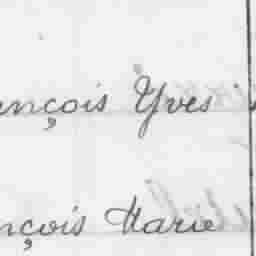 ançois Yves
nçois Marie